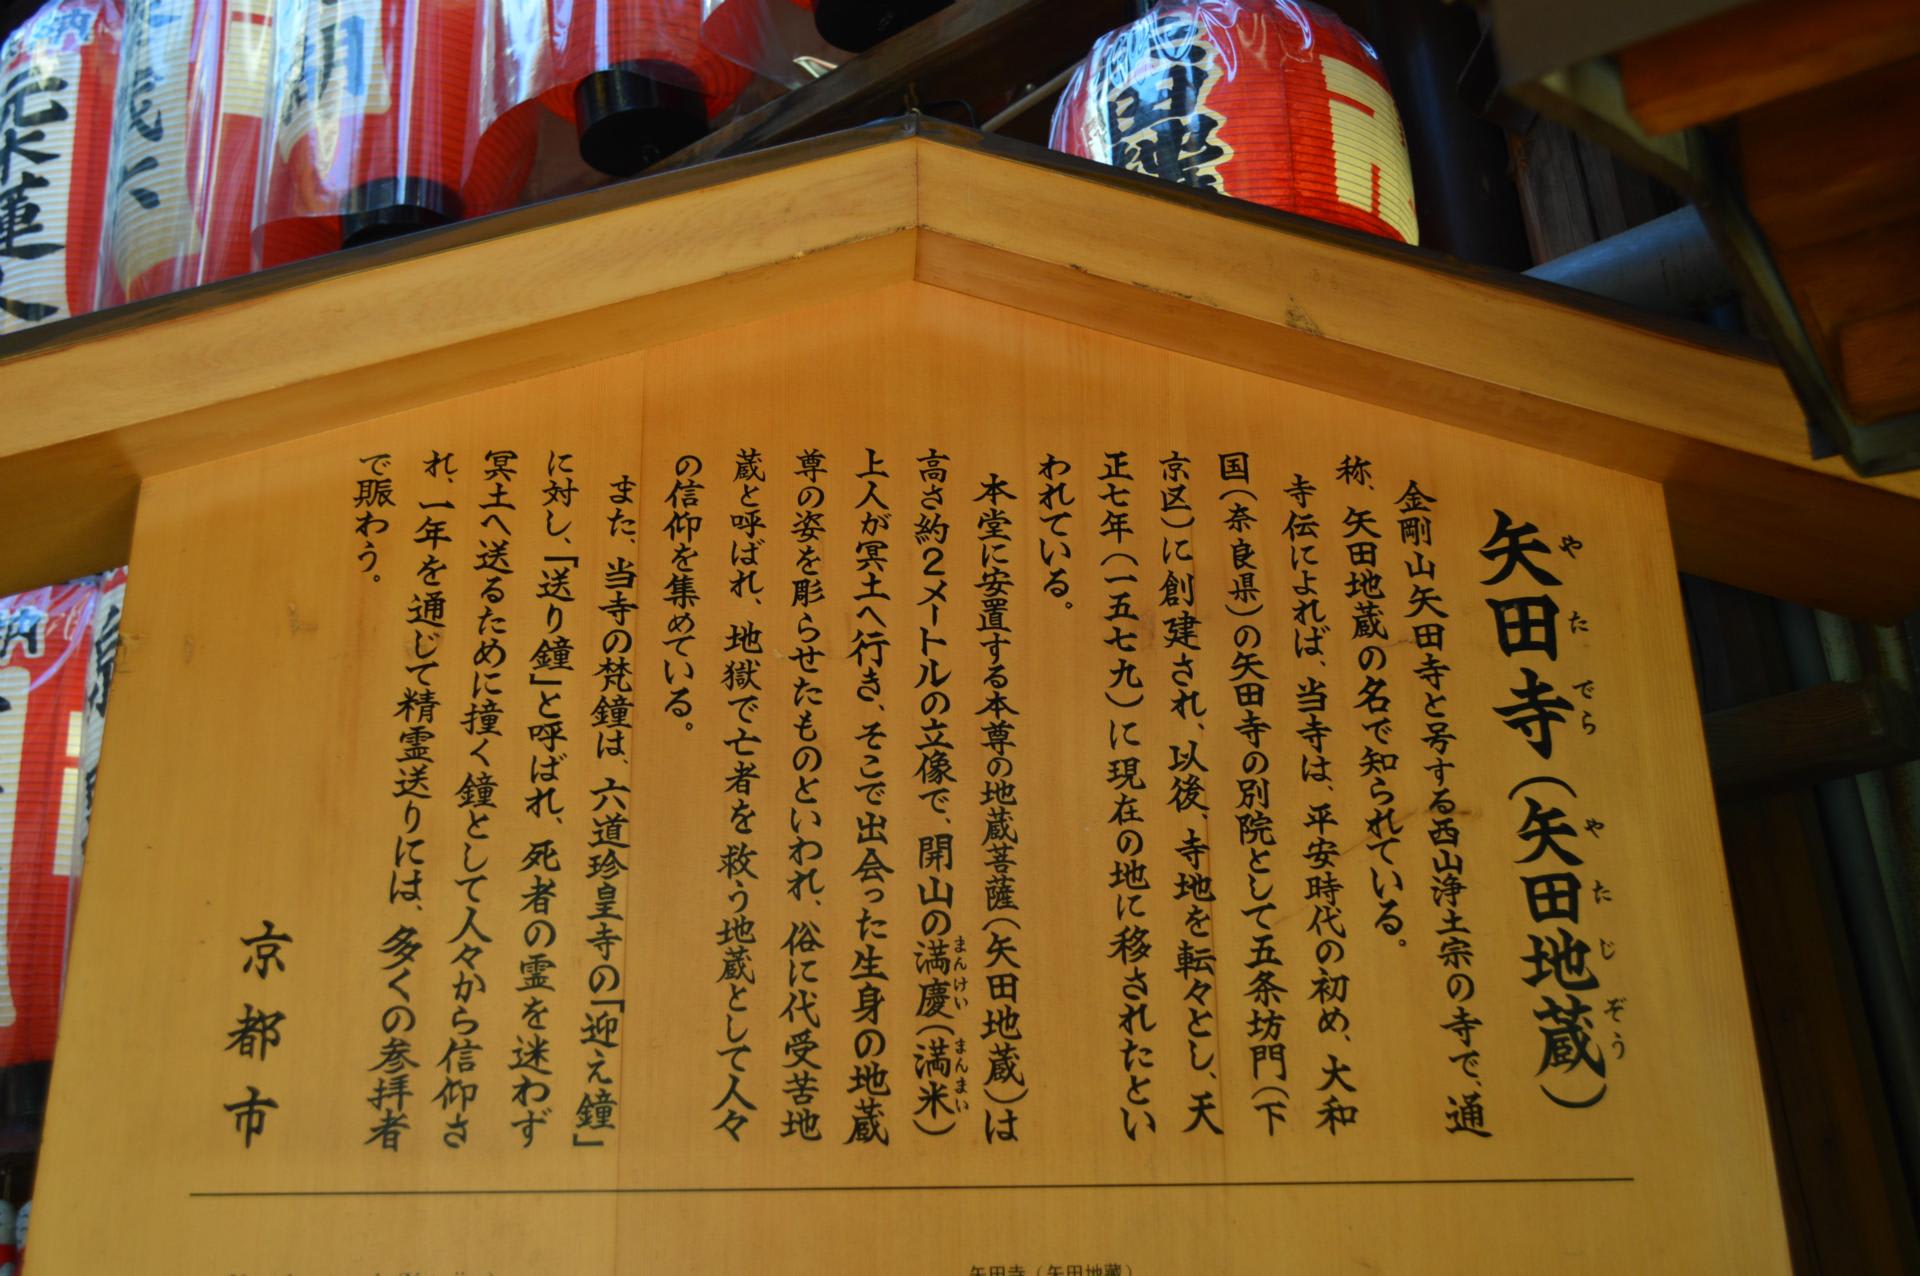 矢田寺（矢田地蔵）
やたでら
やたじぞう
金剛山矢田寺と号する西山浄土宗の寺で、通
称、矢田地蔵の名で知られている。
寺伝によれば、当寺は、平安時代の初め、大和
国（奈良県）の矢田寺の別院として五条坊門（下
京区）に創建され、以後、寺地を転々とし、天
正七年（一五七九）に現在の地に移されたとい
われている。
本堂に安置する本尊の地蔵菩薩（矢田地蔵）は
高さ約２メートルの立像で、開山の満慶（満米）
まんけい
まんまい
上人が冥土へ行き、そこで出会った生身の地蔵
尊の姿を彫らせたものといわれ、俗に代受苦地
蔵と呼ばれ、地獄で亡者を救う地蔵として人々
の信仰を集めている。
また、当寺の梵鐘は、六道珍皇寺の「迎え鐘」
に対し、「送り鐘」と呼ばれ、死者の霊を迷わず
冥土へ送るために撞く鐘として人々から信仰さ
れ、一年を通じて精霊送りには、多くの参拝者
で賑わう。
京都市
矢田寺（矢田地藏）